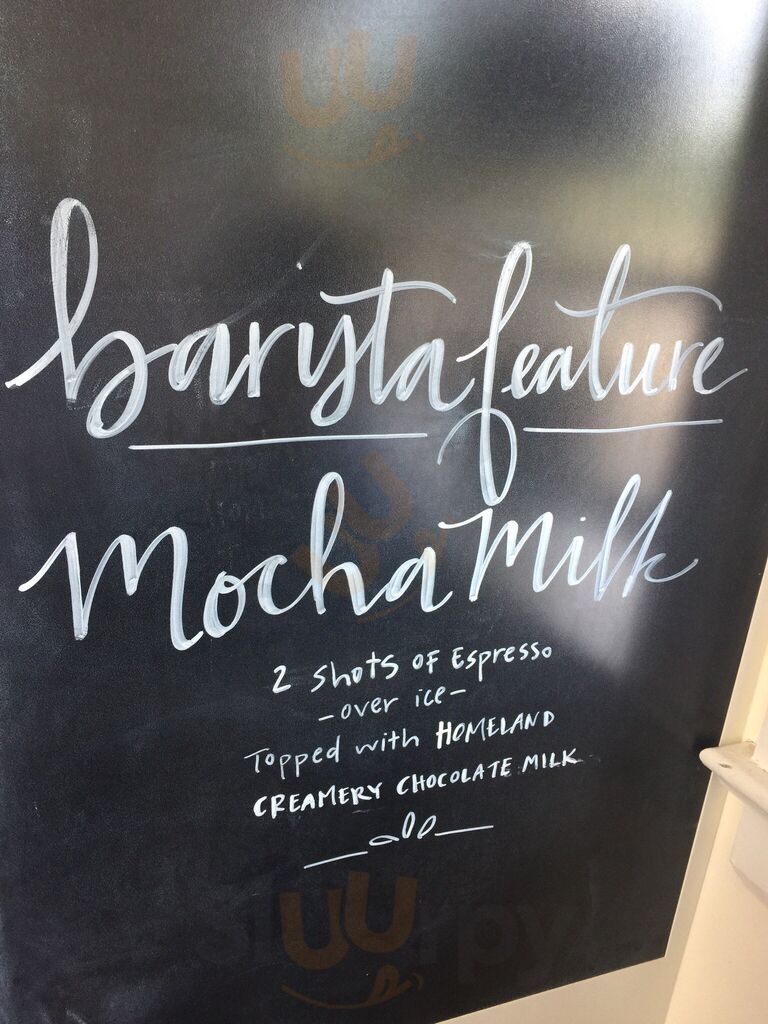 baryta feature
mocha milk
2 shots of Espresso
- over ice -
Topped with HOMELAND
CREAMERY CHOCOLATE MILK
sluurpy